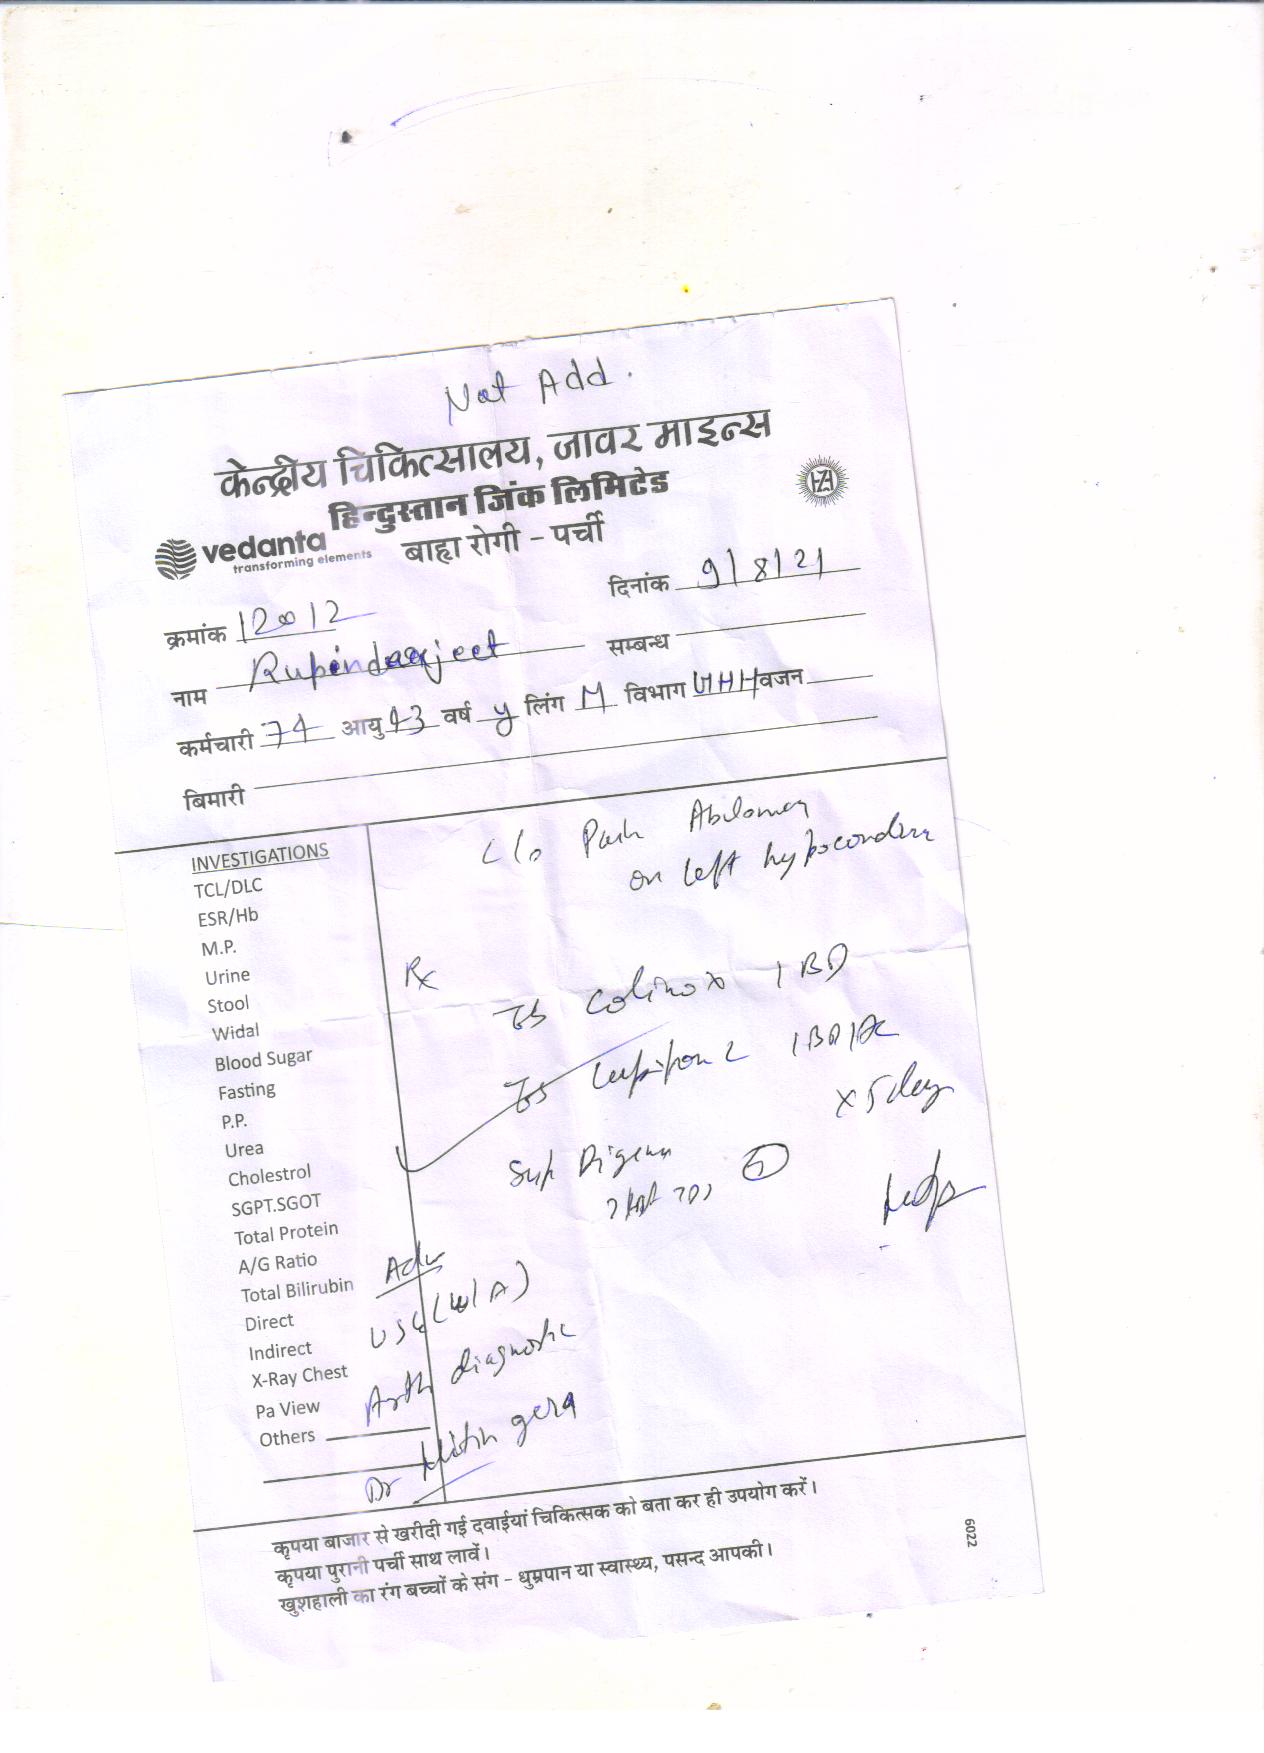 Not Add.
केन्द्रीय चिकित्सालय, जावर माइन्स
हिन्दुस्तान जिंक लिमिटेड
vedanta
transforming elements
बाह्य रोगी - पर्ची
दिनांक 9/8/21
क्रमांक 120012
नाम Rupinderjeet सम्बन्ध
कर्मचारी 74 आयु 43 वर्ष y लिंग M विभाग वजन
बिमारी
C/o Pain Abdomen
on left hypocondria
INVESTIGATIONS
TCL/DLC
ESR/Hb
M.P.
Urine
Stool
Widal
Blood Sugar
Fasting
P.P.
Urea
Cholestrol
SGPT.SGOT
Total Protein
A/G Ratio
Total Bilirubin
Direct
Indirect
X-Ray Chest
Pa View
Others
Rx
Tb Colinox 1 BD
Tb 1 BD
x 5 day
Syp
Adv
USG (W/A)
Arth diagnostic
Dr Nitin gera
कृपया बाजार से खरीदी गई दवाईयां चिकित्सक को बता कर ही उपयोग करें।
कृपया पुरानी पर्ची साथ लावें।
खुशहाली का रंग बच्चों के संग - धुम्रपान या स्वास्थ्य, पसन्द आपकी।
6022